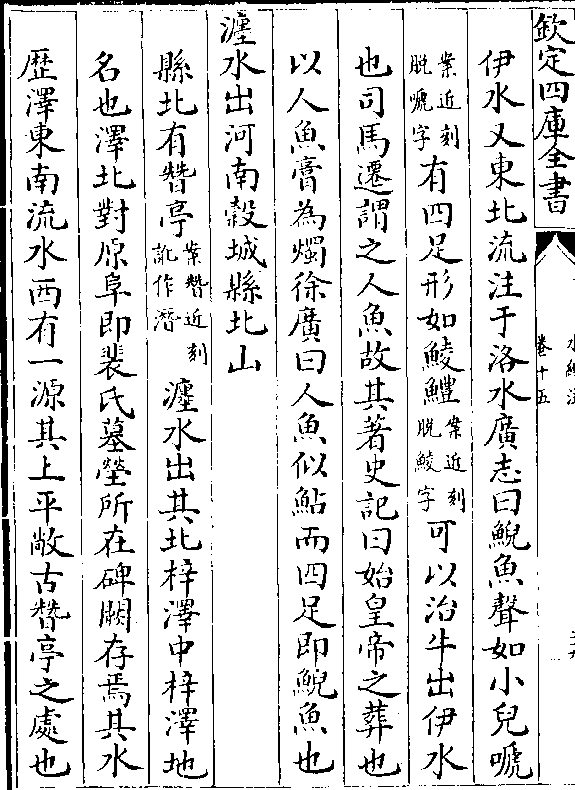 欽定四庫全書
水經注
卷十五
伊水又東北流注于洛水廣志曰鯢魚聲如小兒嗁
案近刻脱嗁字有四足形如鯪鱧案近刻脱鯪字可以治牛出伊水
也司馬遷謂之人魚故其著史記曰始皇帝之葬也
以人魚膏為燭徐廣曰人魚似鮎而四足即鯢魚也
瀍水出河南榖城縣北山
縣北有朁亭案朁近刻訛作潛瀍水出其北梓澤中梓澤地
名也澤北對原阜即裴氏墓塋所在碑闕存焉其水
歴澤東南流水西有一源其上平敞古朁亭之處也